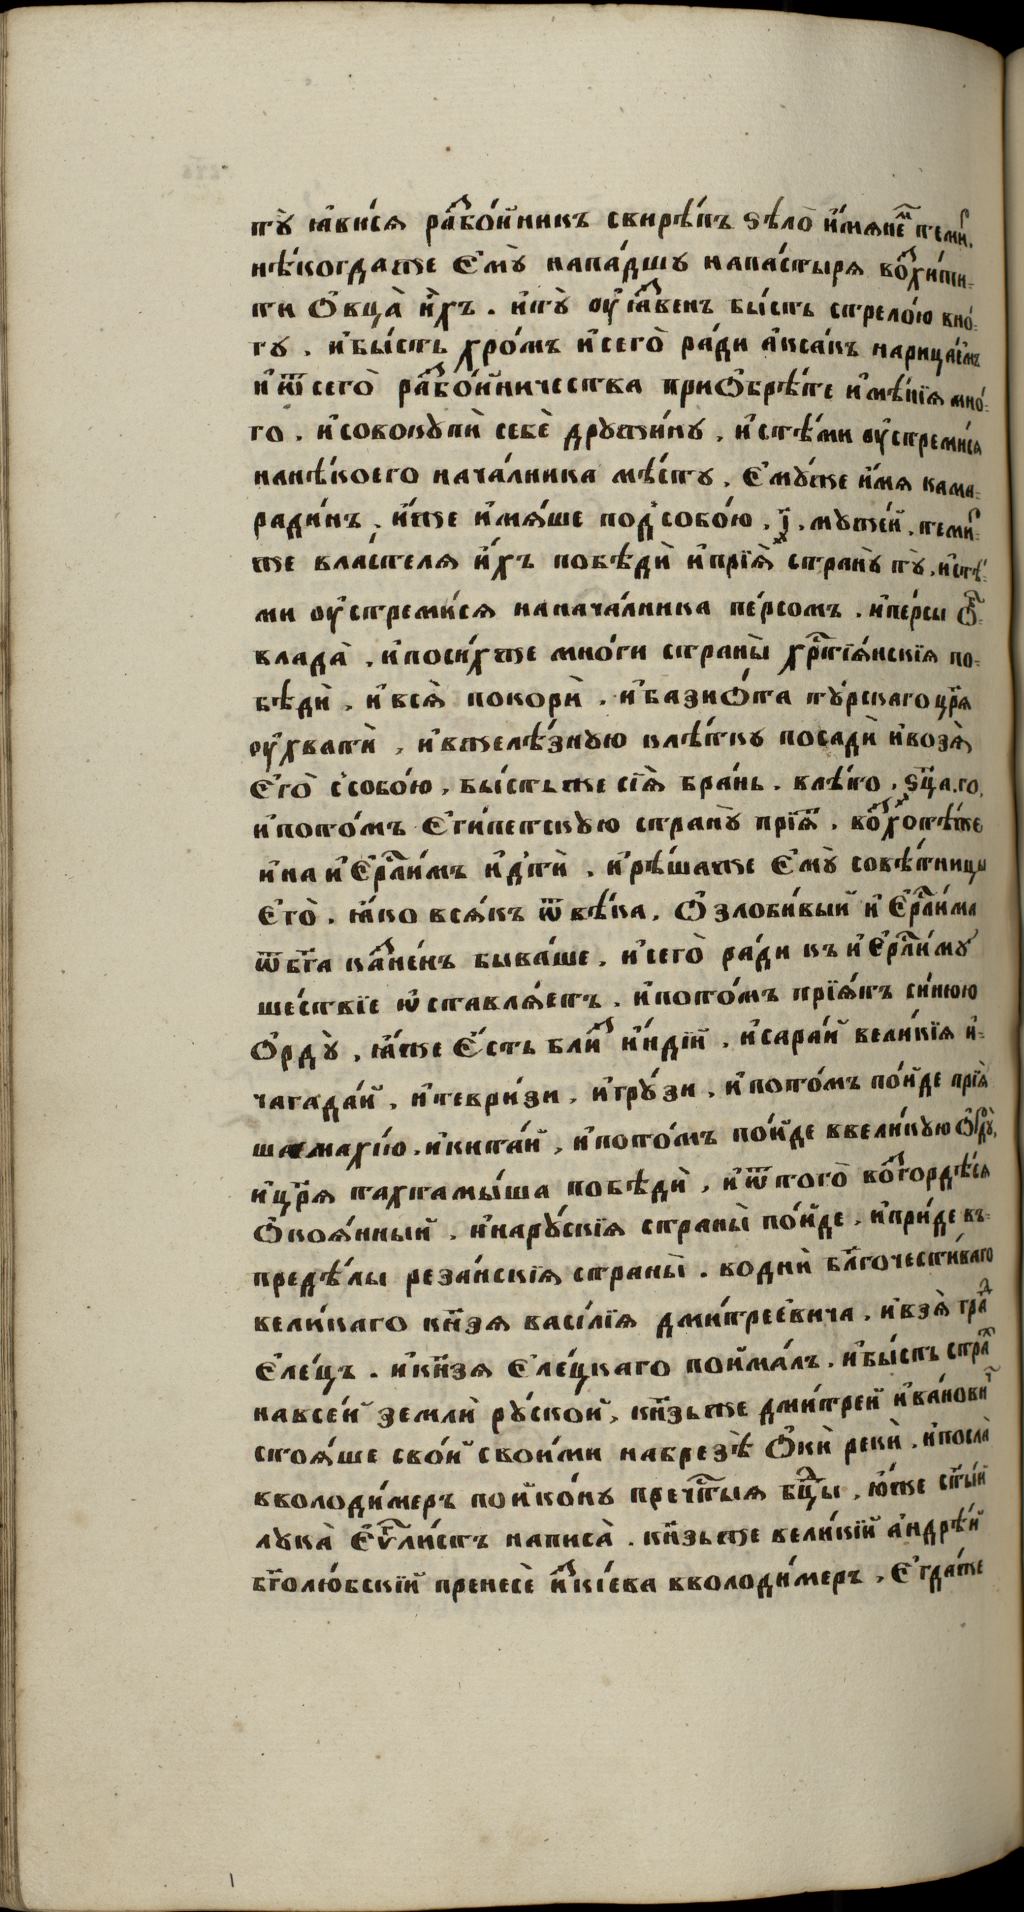 тꙋ̀ ꙗ҆ви́сѧ ра́ⷥбо́йникъ свирѣ́пъ ѕѣлѡ̀ и҆́мѧнеⷨ теми́ⷬ.
нѣ́когдаже є҆мꙋ̀ напа́дшꙋ напа́стырѧ воⷥхи́ти-
ти ѻ҆вца̀ и҆́хъ . и҆тꙋ̀ оу҆ѧ́ⷥвенъ бы́сть стрело́ю вно́-
гꙋ . и҆бы́сть хро́мъ и҆сегѡ̀ ра́ди а҆кса́къ нарица́емъ
и҆ѿсегѡ̀ раⷥбо́йничества приѻ҆брѣ́те и҆мѣ́нїѧ мно́-
го . и҆совокꙋпѝ себѐ дрꙋжи́нꙋ . и҆стѣ́ми оу҆стреми́сѧ
нанѣ́коего нача́лника мѣ́стꙋ , є҆мꙋ́же и҆́мѧ кама-
ради́нъ , и҆́же и҆мѧ́ше под̾собо́ю . ҂і҃ . мꙋже́й . теми́ⷬ
же вла́стелѧ и҆́хъ побѣдѝ и҆прїѧ̀ странꙋ̀ тꙋ̀ . и҆стѣ́-
ми оу҆стреми́сѧ наначалника пе́рсомъ . и҆пе́рсы ѻ҆ⷠ-
влада̀ , и҆поси́хже мно́ги страны̀ хрⷭ҇тїѧ́нскїѧ по-
бѣдѝ , и҆всѧ̀ покорѝ . и҆базиѻ҆́та тꙋ́рскаго цр҃ѧ
оу҆хватѝ , и҆вжелѣ́знꙋю клѣ́ткꙋ посадѝ и҆возѧ̀
є҆го̀ ссобо́ю , бы́стьже сїѧ̀ бра́нь . влѣ́то . ѕц҃а.го ,
и҆пото́мъ є҆ги́петскꙋю странꙋ̀ прїѧ̀ . воⷭ҇хотѣ́же
и҆на и҆є҆рⷭ҇ли́мъ и҆дтѝ , и҆рѣ́шаже є҆мꙋ̀ совѣ́тницы
є҆го̀ . ꙗ҆́ко всѧ́къ ѿвѣ́ка , ѻ҆злоби́вый и҆є҆рⷭ҇ли́ма
ѿбг҃а каⷥне́нъ быва́ше , и҆сегѡ̀ ради къ и҆є҆рⷭ҇ли́мꙋ
ше́ствїе ѡ҆ставлѧ́етъ . и҆пото́мъ прїѧ́тъ си́нюю
ѻ҆́рдꙋ̀ , ꙗ҆́же є҆́сть бли́ⷥ и҆́ндїй , и҆сара́й вели́кїѧ и҆-
чагада́й , и҆теври́зи , и҆грꙋ́зи , и҆пото́мъ по́йде прїѧ̀
шамахі́ю . и҆кита́й , и҆пото́мъ по́йде ввели́кꙋю ѻ҆ⷬдꙋ̀,
и҆цр҃ѧ тахтамы́ша побѣдѝ , и҆ѿтогѡ̀ воⷥгордѣ́сѧ
ѻ҆коѧ́нный , и҆нарꙋ́скїѧ страны̀ по́йде , и҆при́де въ-
предѣ́лы реза́нскїѧ страны̀ . водни̑ бл҃гочести́ваго
вели́каго кн҃зѧ васи́лїѧ дми́трее́вича , и҆взѧ̀ граⷣ
є҆ле́цъ . и҆кн҃зѧ є҆ле́цкаго пойма́лъ . и҆бы́сть страⷯ
навсе́й землѝ рꙋ́ской , кн҃зьже дми́трей и҆ва́новиⷱ
стоѧ́ше сво́и своими набрезѣ̀ ѻ҆кѝ рекѝ . и҆посла̀
вволоди́меръ пойко́нꙋ преⷱ҇тыѧ бц҃ы , ю҆́же ст҃ы́й
лꙋка̀ є҆ѵⷢ҇ли́стъ написа̀ . кн҃зьже вели́кїй а҆ндрѣ́й
бг҃олю́бскїй пренесѐ и҆ⷥкі́ева вволоди́меръ , є҆гда́же